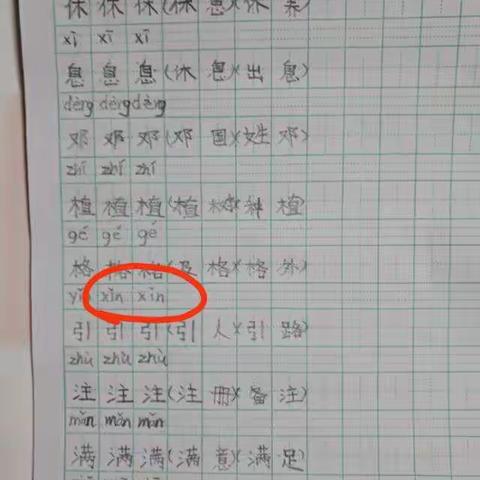 休 休 休(休 息)(休 养)
xī xī xī
息 息 息(休 息)(出 息)
dèng dèng dèng
邓 邓 邓(邓 国)(姓 邓)
zhí zhí zhí
植 植 植(植 树)(种 植)
gé gé gé
格 格 格(及 格)(格 外)
yǐn xǐn xǐn
引 引 引(引 人)(引 路)
zhù zhù zhù
注 注 注(注 册)(备 注)
mǎn mǎn mǎn
满 满 满(满 意)(满 足)